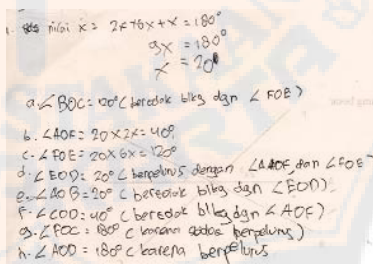 nilai x = 2x+6x+x = 180°
9x = 180°
x = 20°
a. ∠BOC = 120° (bertolak blkg dgn ∠FOE)
b. ∠AOF = 20x2x = 40°
c. ∠FOE = 20x6x = 120°
d. ∠EOD = 20° (berpelurus dengan ∠AOF dan ∠FOE)
e. ∠AOB = 20° (bertolak blkg dgn ∠EOD)
f. ∠COD = 40° (bertolak blkg dgn ∠AOF)
g. ∠FOC = 180° (karena berpelurus)
h. ∠AOD = 180° karena berpelurus